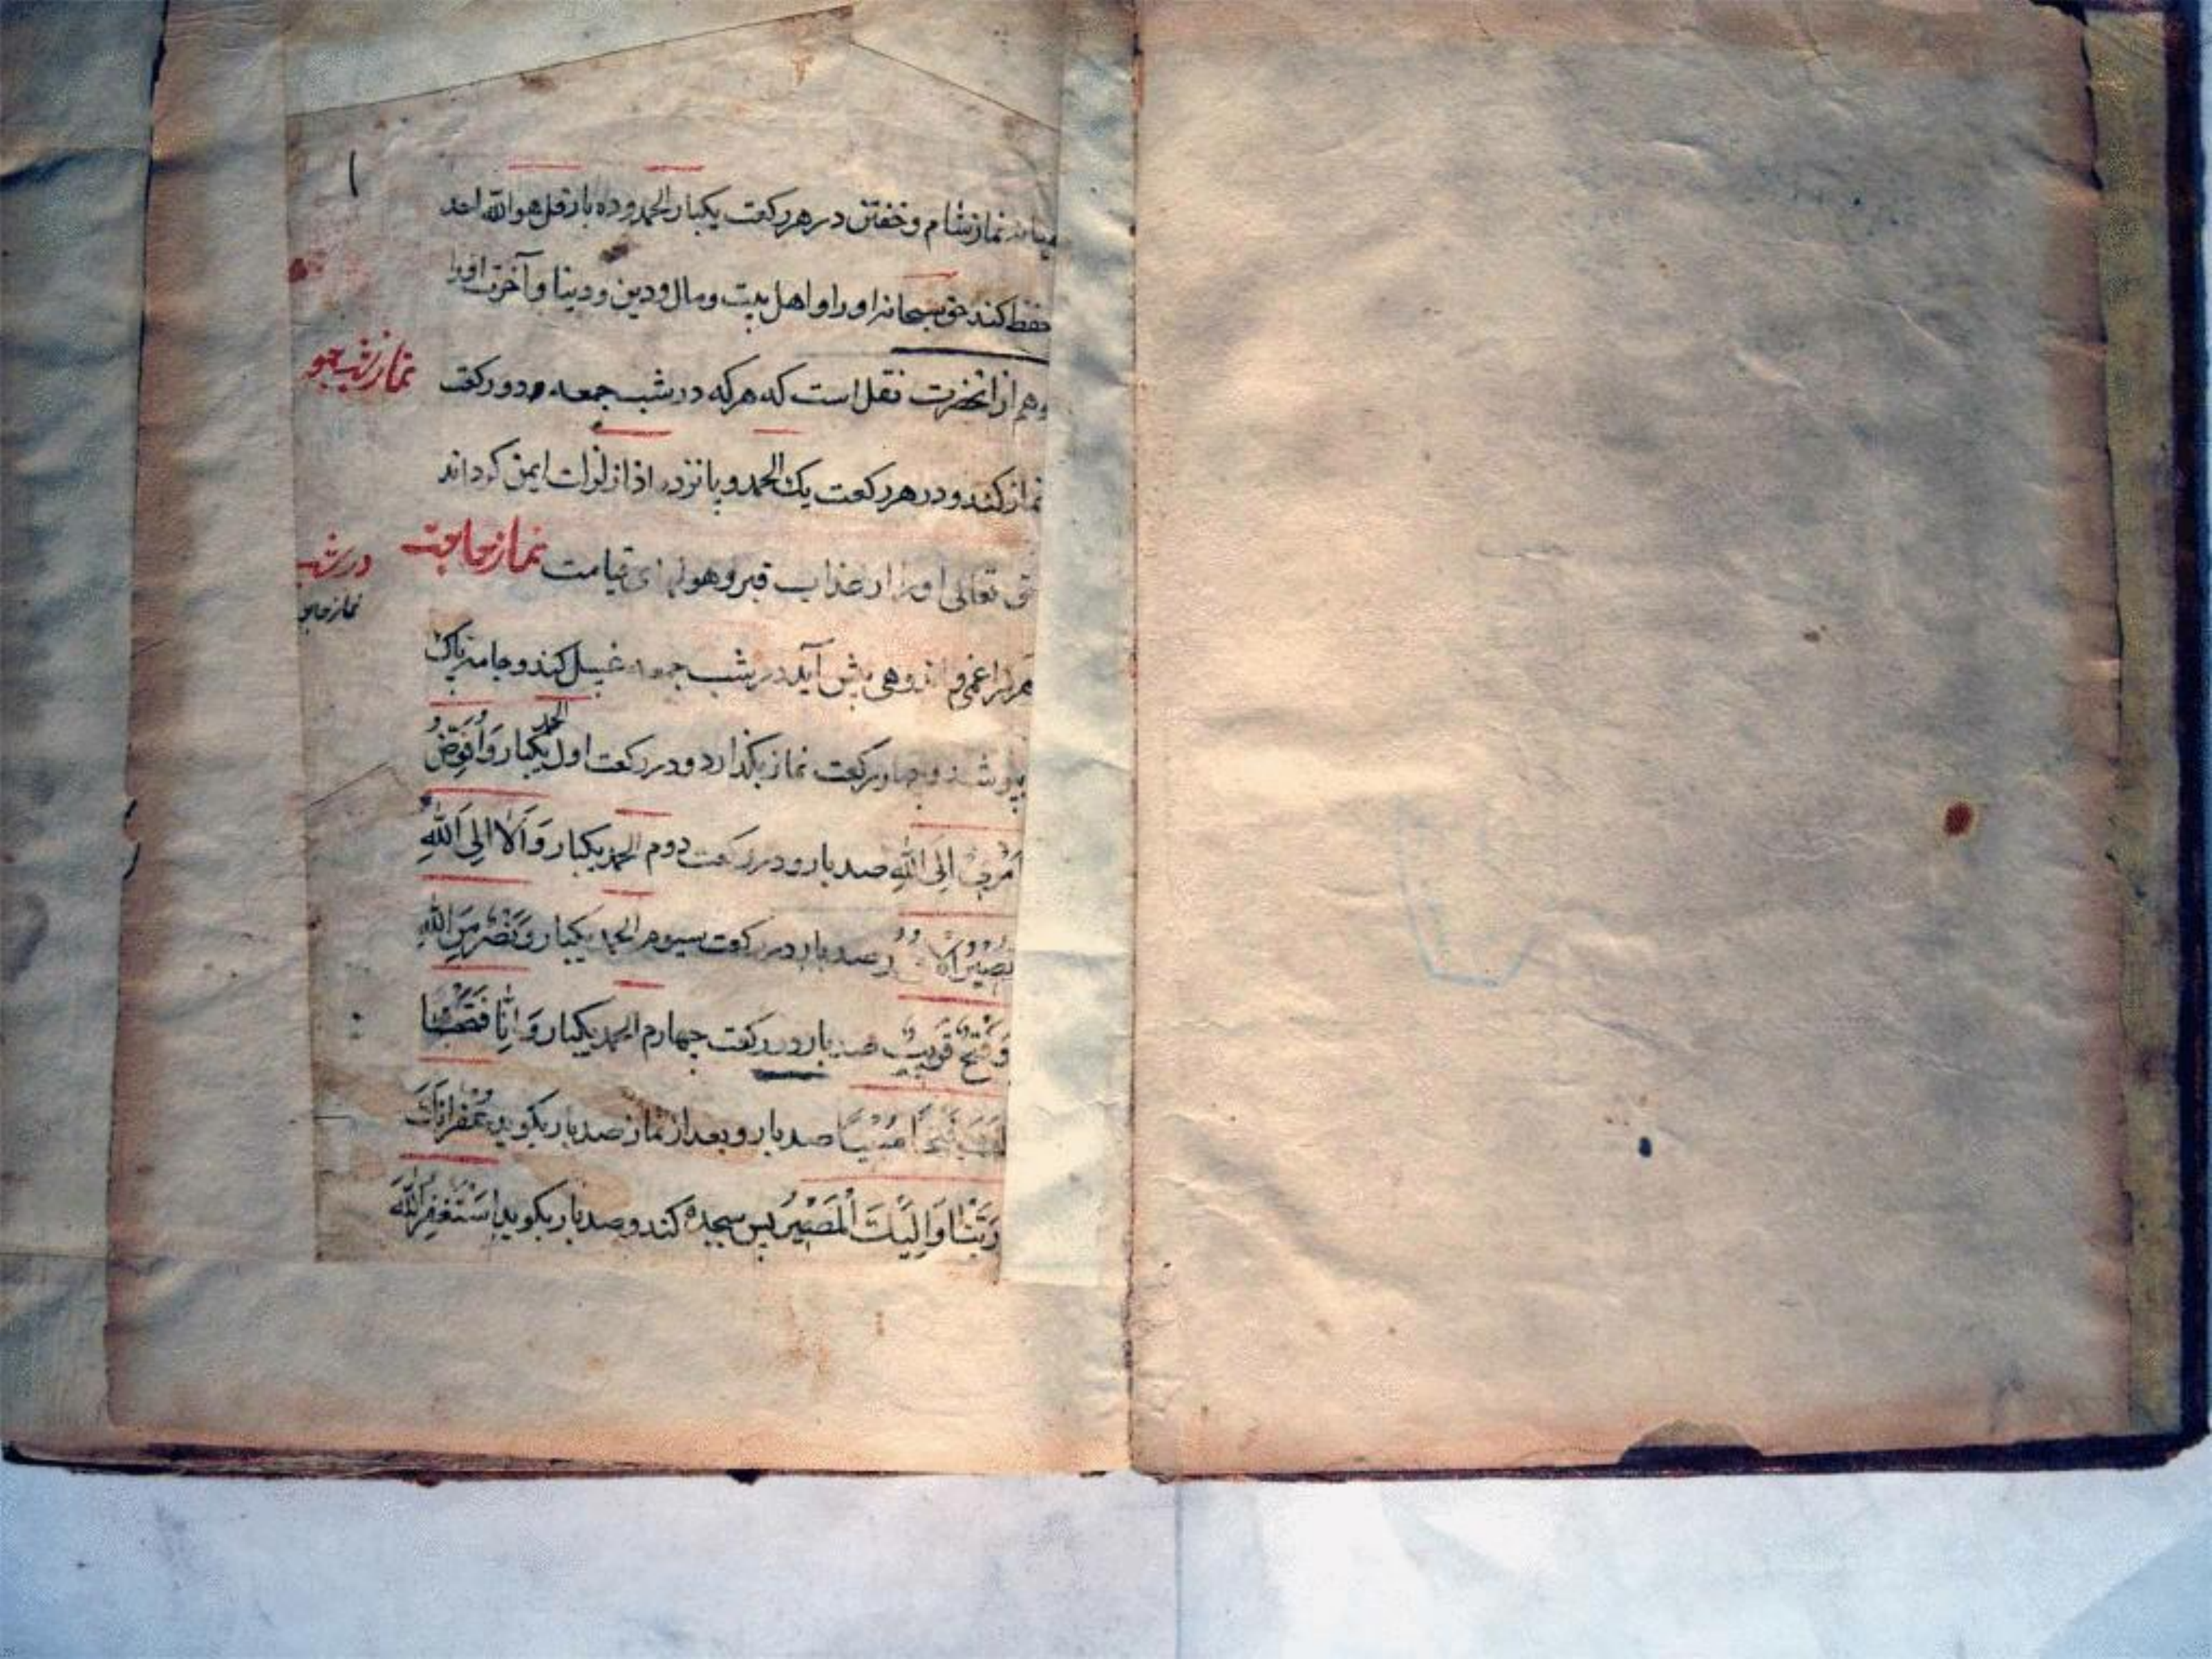 ۱
نماز شام و خفتن در هر رکعت یکبار الحمد و ده بار قل هو الله احد
حفظ کند حق سبحانه او را و اهل بیت و مال و دین و دنیا و آخرت او را
نماز شب جمعه
وهم از انحضرت نقل است که هر که در شب جمعه دو رکعت
نماز کند و در هر رکعت یک الحمد و پانزده اذا زلزلت ایمن کرداند
حق تعالی او را از عذاب قبر و هولهای قیامت نماز حاجت
در شب
نماز حاجت
هر کرا غمی و اندوهی پیش آید در شب جمعه غسل کند و جامه پاک
پوشد و چهار رکعت نماز بکذارد و در رکعت اول الحمد یکبار وَاُفَوِّضُ
اَمْرِی اِلَی اللهِ صد بار و در رکعت دوم الحمد یکبار وَاَلَا اِلَی اللهِ
تَصِیرُ الْاُمُورُ صد بار در رکعت سیوم الحمد یکبار و نَصْرٌ مِنَ اللهِ
وَفَتْحٌ قَرِیبٌ صد بار و در رکعت چهارم الحمد یکبار وَ اِنَّا فَتَحْنَا
لَكَ فَتْحًا مُبِینًا صد بار و بعد از نماز صد بار بکوید غُفْرَانَكَ
رَبَّنَا وَاِلَیْكَ الْمَصِیرُ پس سجده کند و صد بار بکوید اَسْتَغْفِرُ اللهَ